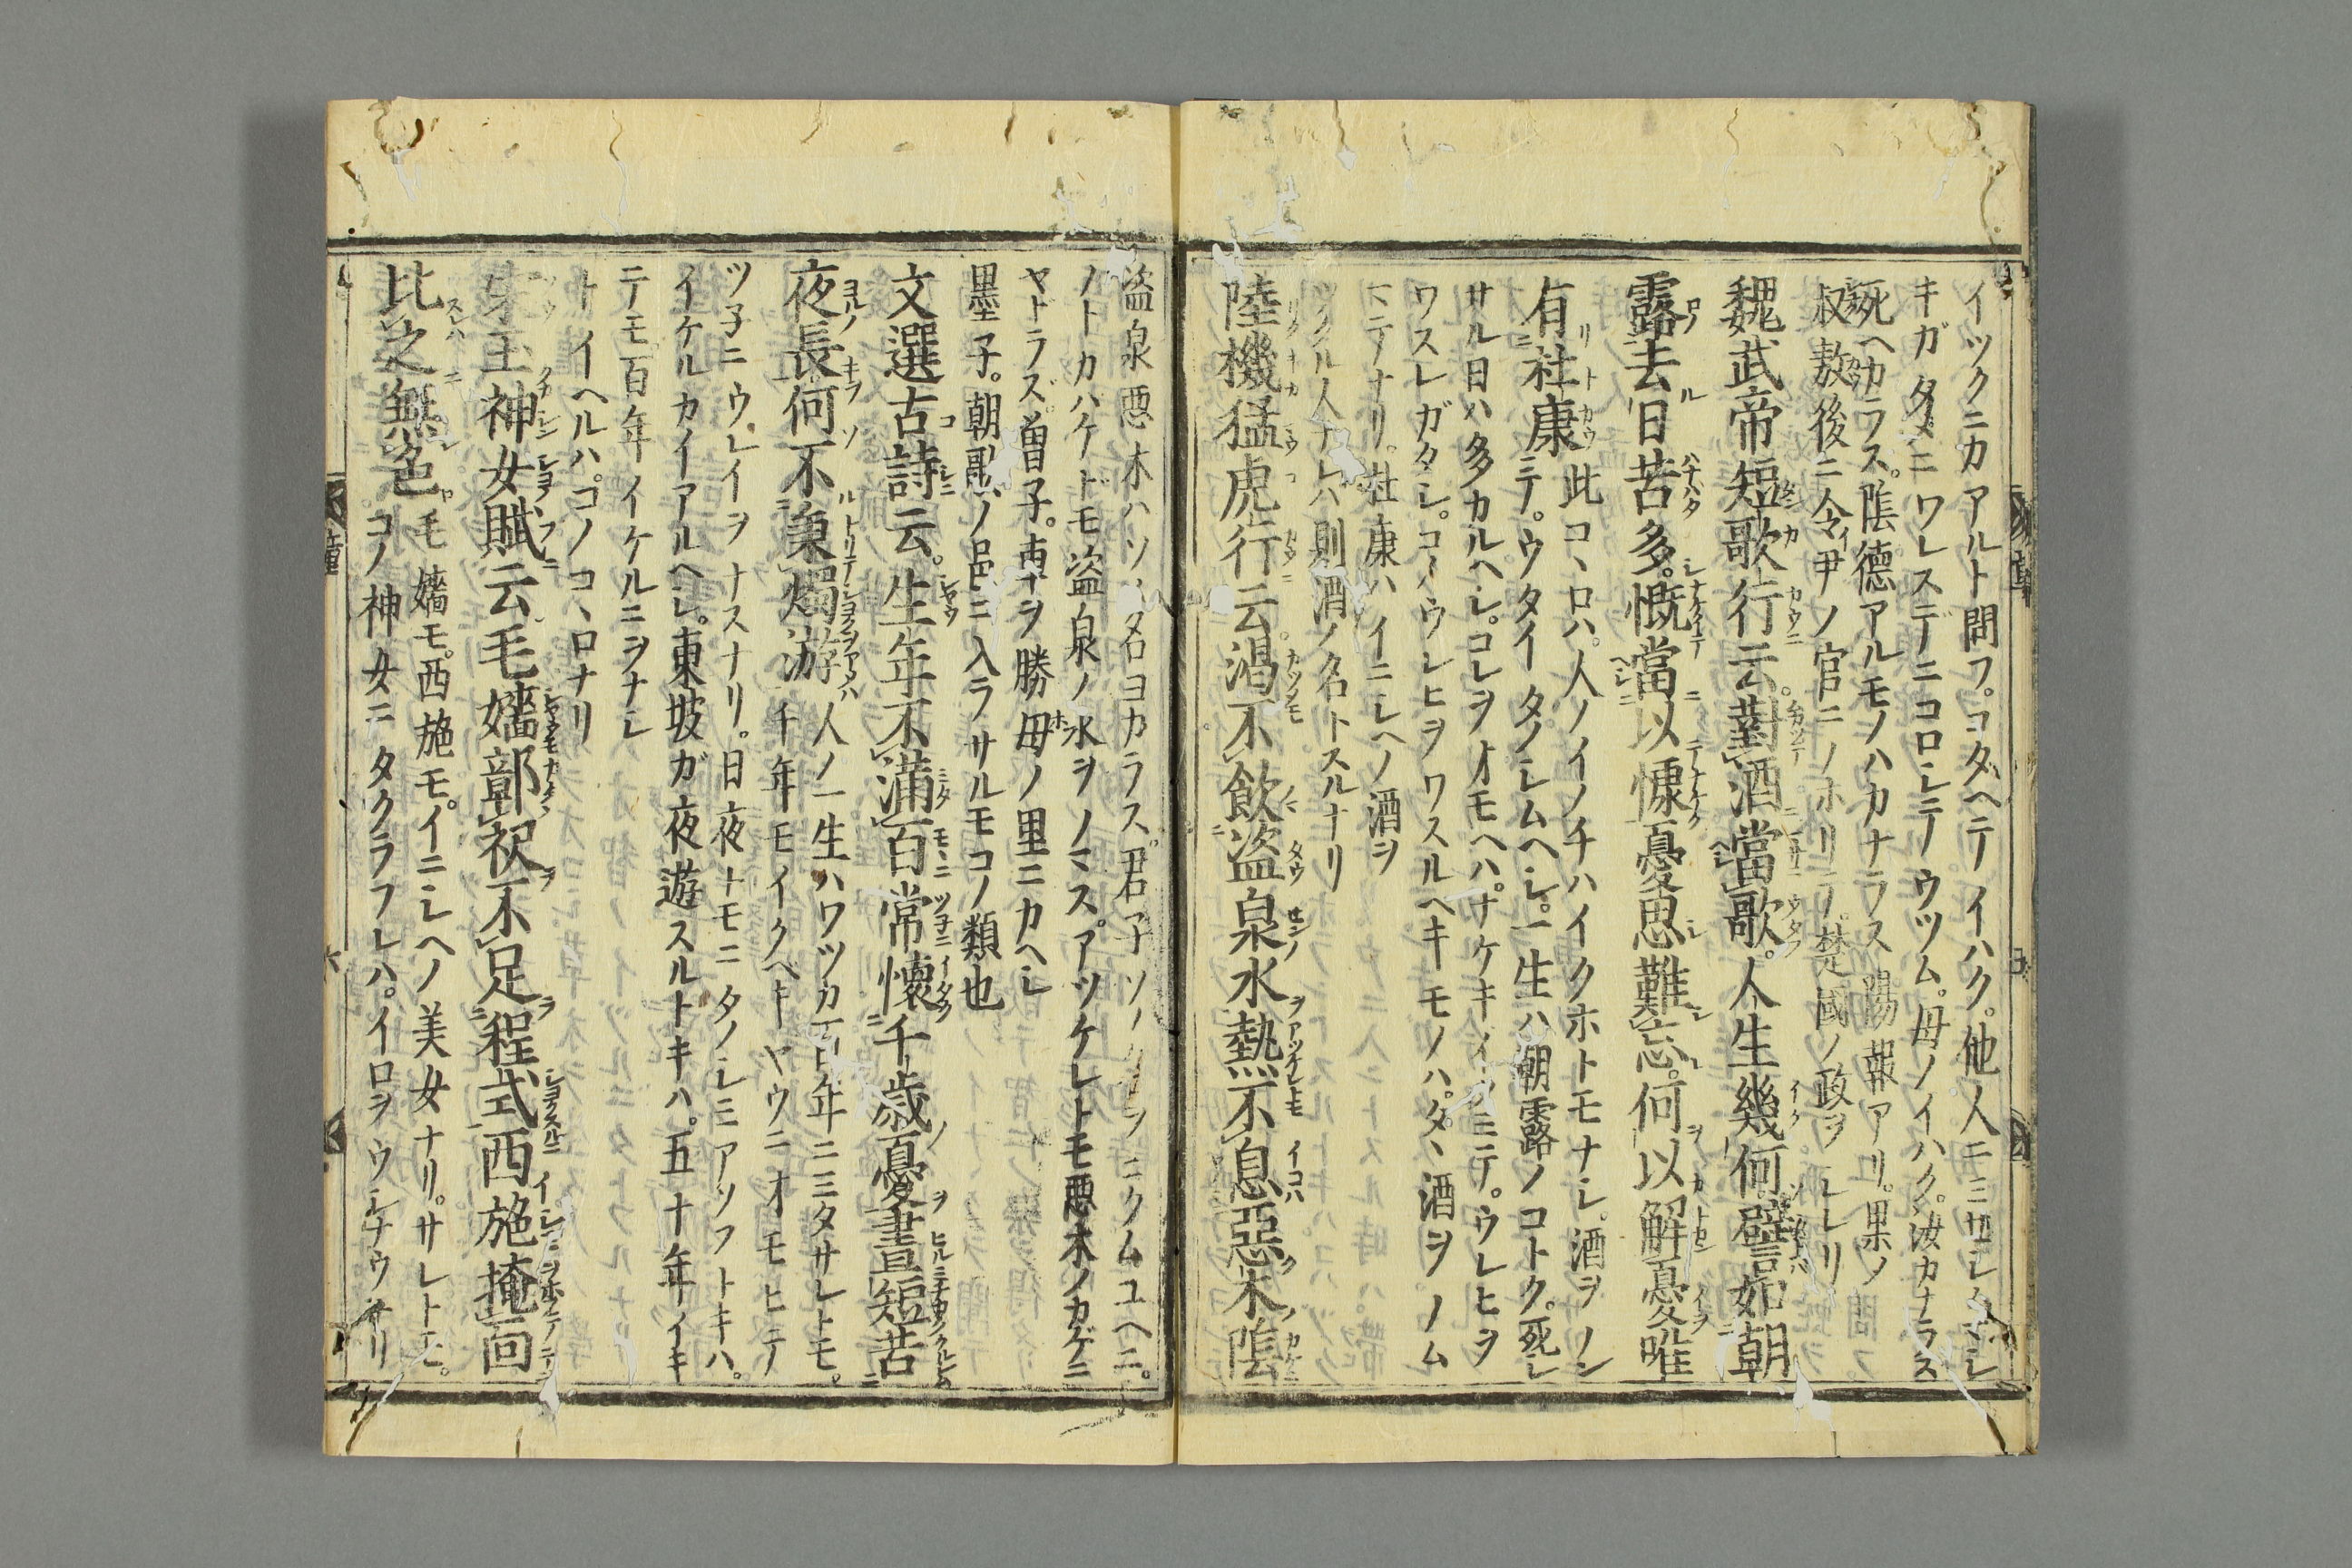 イツクニカアルト問フ。コタヘテイハク。他人ニミセシメジ
キガタメニワレスデニコロシテウツム。母ノイハク。汝カナラス
死ヘカラス。陰德アルモノハカナラス陽報アリ。果ノ
叔敖後ニ令尹ノ官ニノホリテ。楚國ノ政ヲシレリ
魏武帝短歌行云。對酒當歌。人生幾何。譬如朝
露。去日苦多。慨當以慷。憂思難忘。何以解憂。唯
有杜康 此コヽロハ。人ノイノチハイクホトモナシ。酒ヲノン
ミテ。ウタイタノシムヘシ。一生ハ朝露ノコトク。死シ
サル日ハ多カルヘシ。コレヲオモヘハ。ナケキイタミテ。ウレヒヲ
ワスレガタシ。コノウレヒヲワスルヘキモノハ。タヽ酒ヲノム
マテナリ。杜康ハイニシヘノ酒ヲ
ツクル人ナレハ則酒ノ名トスルナリ
陸機猛虎行云。渴不飲盜泉水。熱不息惡木陰
盗泉悪木ハソノ名ヨカラス。君子ソノ名ヲニクムユヘニ。
ノトカハケドモ盗泉ノ水ヲノマス。アツケレトモ悪木ノカゲニ
ヤドラズ。曽子。車ヲ勝母ノ里ニカヘシ
墨子。朝歌ノ邑ニ入ラサルモコノ類也
文選古詩云。生年不滿百。常懷千歳憂。晝短苦
夜長。何不秉燭游 人ノ一生ハワツカ百年ニミタサレトモ。
千年モイクベキヤウニオモヒテ
ツ子ニウレイヲナスナリ。日夜トモニタノシミアソフトキハ。
イケルカイアルヘシ。東坡ガ夜遊スルトキハ。五十年イキ
テモ百年イケルニヲナシ
トイヘルハ。コノコヽロナリ
宋玉神女賦云。毛嬙鄣袂不足程式。西施掩面
比之無色 毛嬙モ。西施モ。イニシヘノ美女ナリ。サレトモ。
コノ神女ニタクラフレハ。イロヲウシナウナリ
六